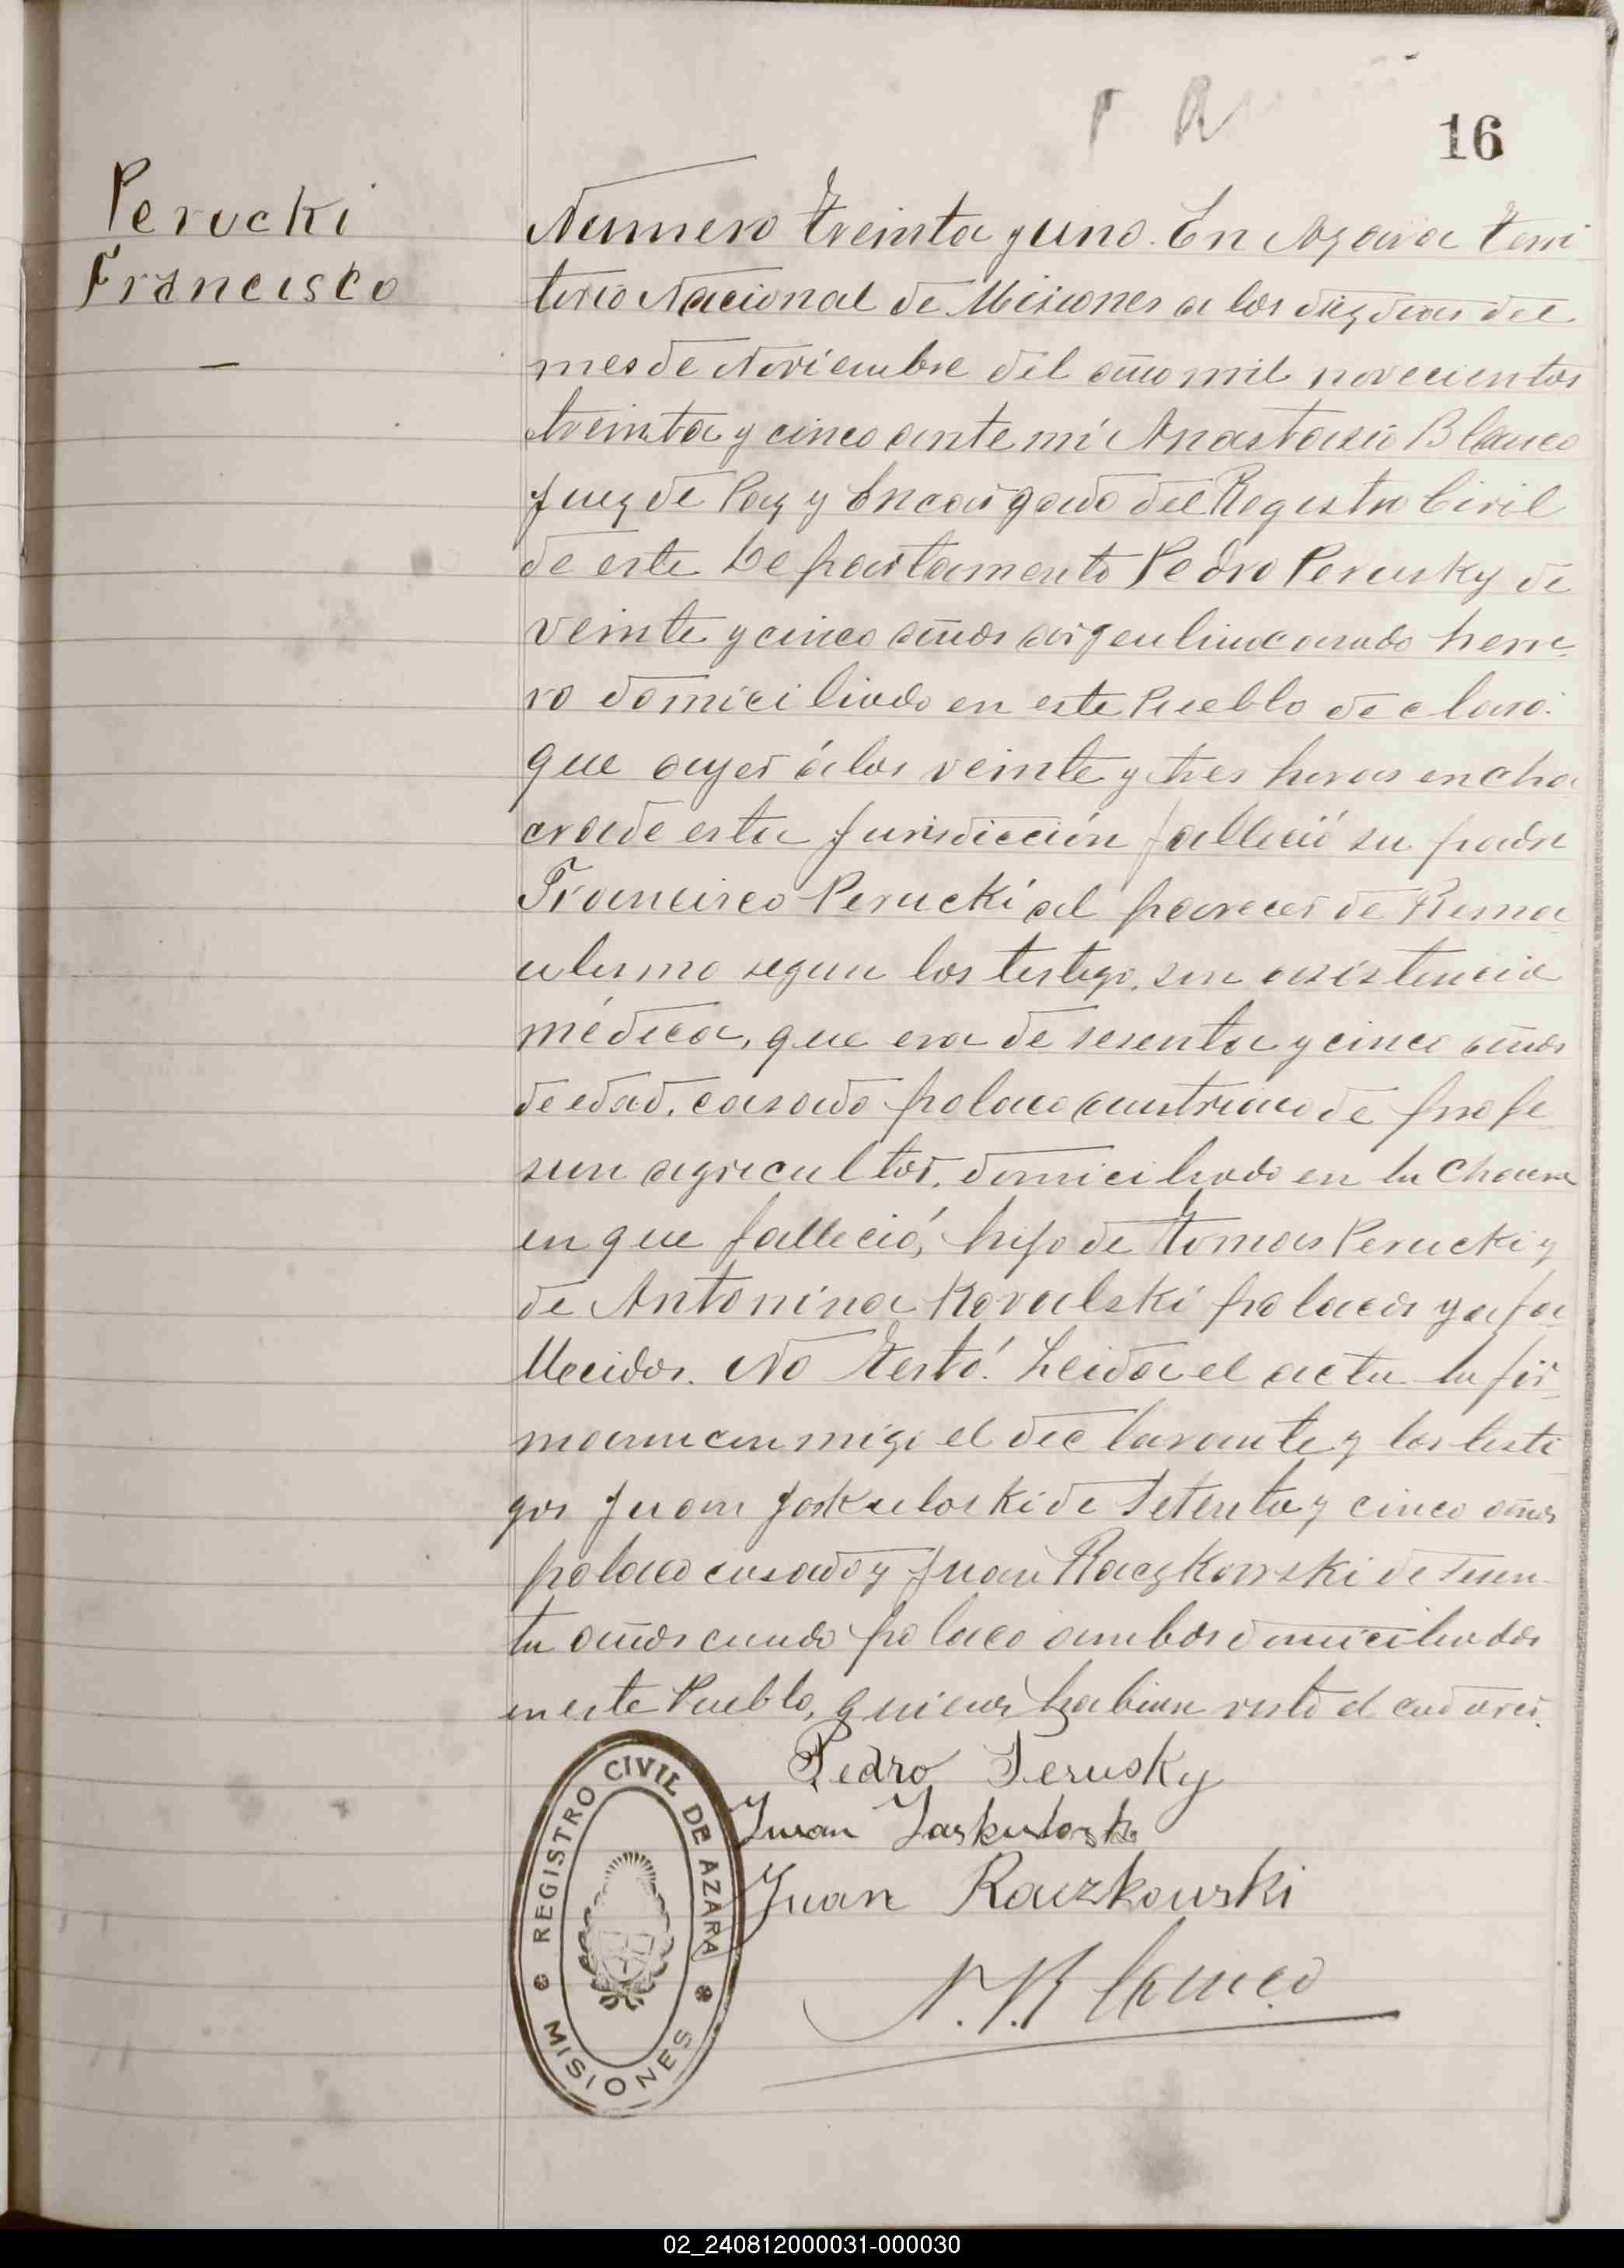 16
Perucki
Francisco
Numero treinta y uno. En Azara terri
torio Nacional de Misiones a los diez dias del
mes de Noviembre del año mil novecientos
treinta y cinco ante mi Anastasio Blanco
Juez de Paz y Encargado del Registro Civil
de este Departamento Pedro Perusky de
veinte y cinco años argentino casado herre
ro domiciliado en este Pueblo declaró:
que ayer á las veinte y tres horas en cha
cra de esta Jurisdicción falleció su padre
Francisco Perucki al parecer de Rema
tismo segun los testigo, sin asistencia
médica, que era de sesenta y cinco años
de edad, casado polaco austriaco de profe
sion agricultor, domiciliado en la chacra
en que falleció, hijo de Tomas Perucki y
de Antonina Kovalski polacos ya fa
llecidos. No testó. Leida el acta la fir
maron conmigo el declarante y los testi
gos Juan Jaskuloski de setenta y cinco años
polaco casado y Juan Raczkowski de sesen
ta años casado polaco ambos domiciliados
en este Pueblo, quienes habian visto el cadaver.
Pedro Perusky
Juan Jaskuloski
Juan Raczkowski
A. Blanco
REGISTRO CIVIL DE AZARA
MISIONES
02_240812000031-000030